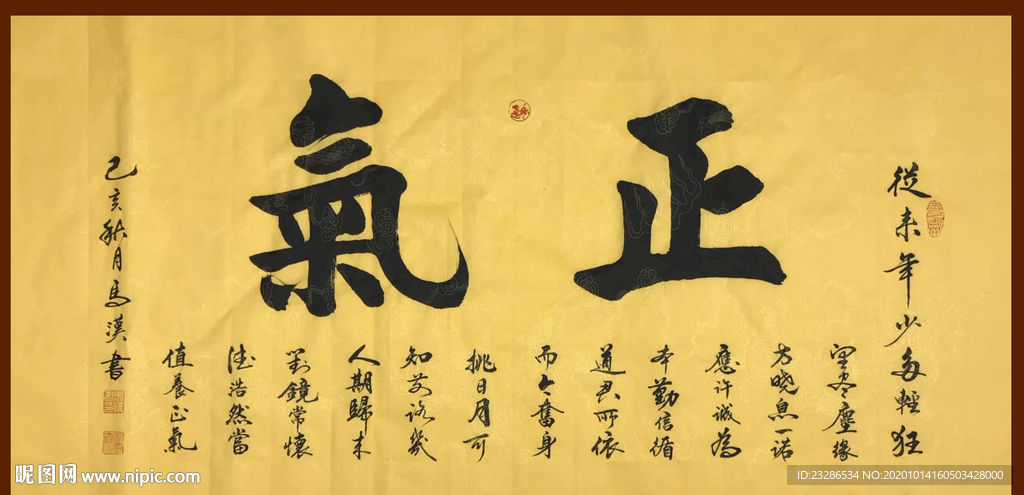 正氣
從来年少多輕狂
塵緣
方曉息一諾
應許誠為
本勤信循
道君所依
而今奮身
挑日月可
知前路幾
人期歸未
對鏡常懷
浩然當
值養正氣
己亥秋月馬漢書
昵图网 www.nipic.com
ID:23286534 NO:20201014160503428000